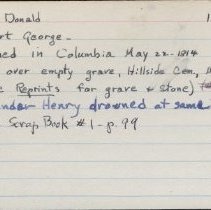 Donald 1
rt George -
ned in Columbia May 22 - 1814
over empty grave, Hillside Cem,
e Reprints for grave & stone)
nder Henry drowned at same
Scrap Book #1 - p. 99